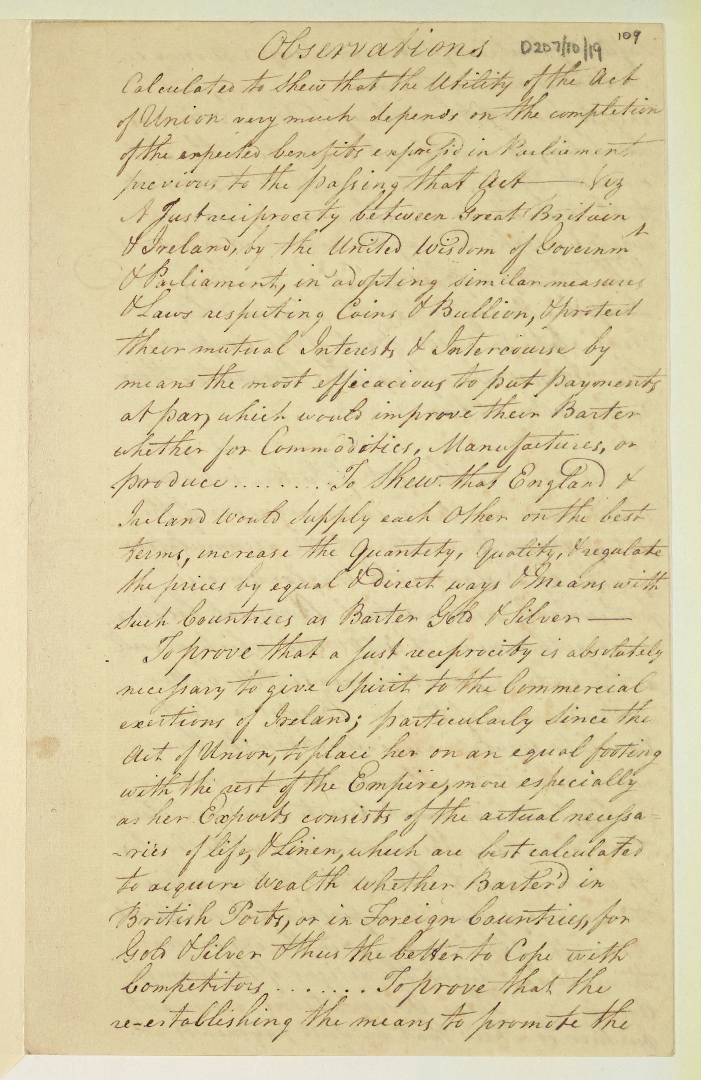 109
D207/10/19
Observations
Calculated to shew that the Utility of the Act
of Union very much depends on the completion
of the expected benefits express'd in Parliament
previous to the passing that Act — Viz
A Just reciprocity between Great Britain
& Ireland, by the United Wisdom of Governmt
& Parliament, in adopting similar measures
& Laws respecting Coins & Bullion, & protect
their mutual Interests & Intercourse by
means the most efficacious to put payments
at par, which would improve their Barter
whether for Commodities, Manufactures, or
produce ........ To Shew that England &
Ireland would supply each other on the best
terms, increase the Quantity, Quality, & regulate
the prices by equal & direct ways & means with
such Countries as Barter Gold & Silver —
To prove that a just reciprocity is absolutely
necessary to give Spirit to the Commercial
exertions of Ireland; particularly since the
Act of Union, to place her on an equal footing
with the rest of the Empire, more especially
as her Exports consists of the actual necessa=
-ries of life, & Linen, which are best calculated
to acquire Wealth whether Barter'd in
British Ports, or in Foreign Countries, for
Gold & Silver & thus the better to Cope with
Competitors ....... To prove that the
re-establishing the means to promote the